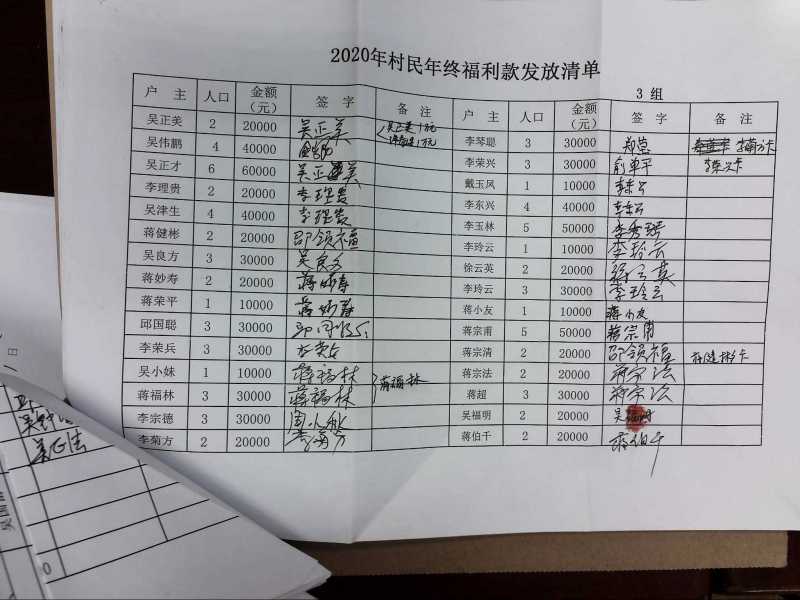 2020年村民年终福利款发放清单
3 组
户 主 人口 金额（元） 签 字 备 注 户 主 人口 金额（元） 签 字 备 注
吴正美 2 20000 吴正美 吴正美1万元 李琴聪 3 30000 郑慧 李菊方卡
吴伟鹏 4 40000 李荣兴 3 30000 俞单平
吴正才 6 60000 吴正美 戴玉凤 1 10000 李东云
李理贵 2 20000 李理贵 李东兴 4 40000 李东云
吴津生 4 40000 李理贵 李玉林 5 50000 李秀琴
蒋健彬 2 20000 邵领福 李玲云 1 10000 李玲云
吴良方 3 30000 吴良方 徐云英 2 20000 徐云英
蒋妙寿 2 20000 蒋妙寿 李玲云 3 30000 李玲云
蒋荣平 1 10000 蒋妙寿 蒋小友 1 10000 蒋小友
邱国聪 3 30000 邱国聪 蒋宗甫 5 50000 蒋宗甫
李荣兵 3 30000 蒋宗清 2 20000 邵领福 蒋健彬卡
吴小妹 1 10000 蒋福林 蒋福林 蒋宗法 2 20000 蒋宗法
蒋福林 3 30000 蒋福林 蒋超 3 30000 蒋宗法
李宗德 3 30000 周小秋 吴福明 2 20000 吴福明
李菊方 2 20000 李菊方 蒋伯千 2 20000 蒋伯千